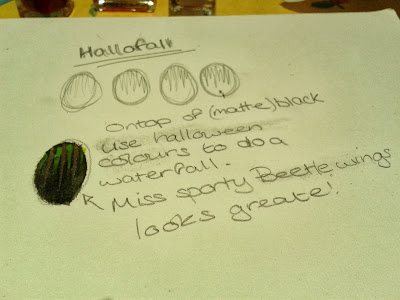 Hallofall
Ontop of (matte) black
use halloween
colours to do a
waterfall.
Miss sporty Beetle wings
looks greate!